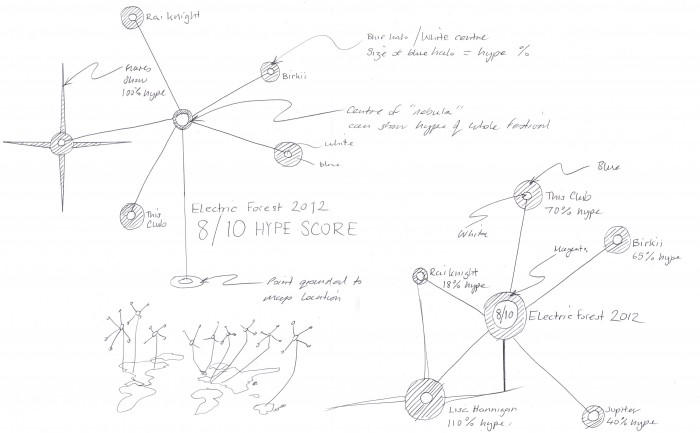 Rai Knight
Blue halo / White centre
Size of blue halo = hype %
Flares
show
100% hype
Birkii
Centre of "nebula"
can show hype of whole festival
White
blue
This
Club
Electric Forest 2012
8/10 HYPE SCORE
Point grounded to
map location
Blue
This Club
70% hype
White
Magenta
Birkii
65% hype
Rai Knight
18% hype
8/10
Electric Forest 2012
Lisa Hannigan
110% hype.
Jupiter
40% hype